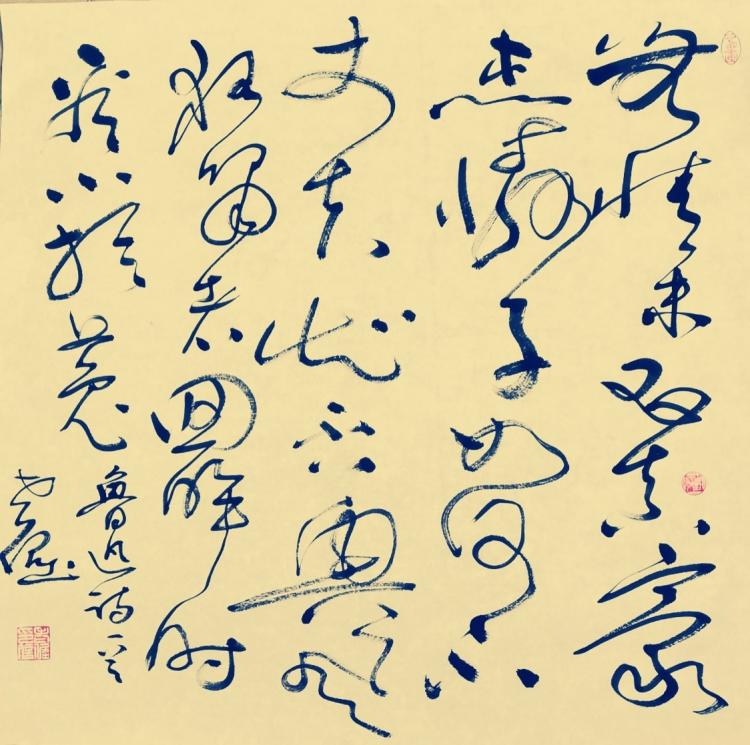 无情未必真豪
杰憐子如何不
丈夫知否興风
狂啸者回眸时
看小於菟
鲁迅诗一首